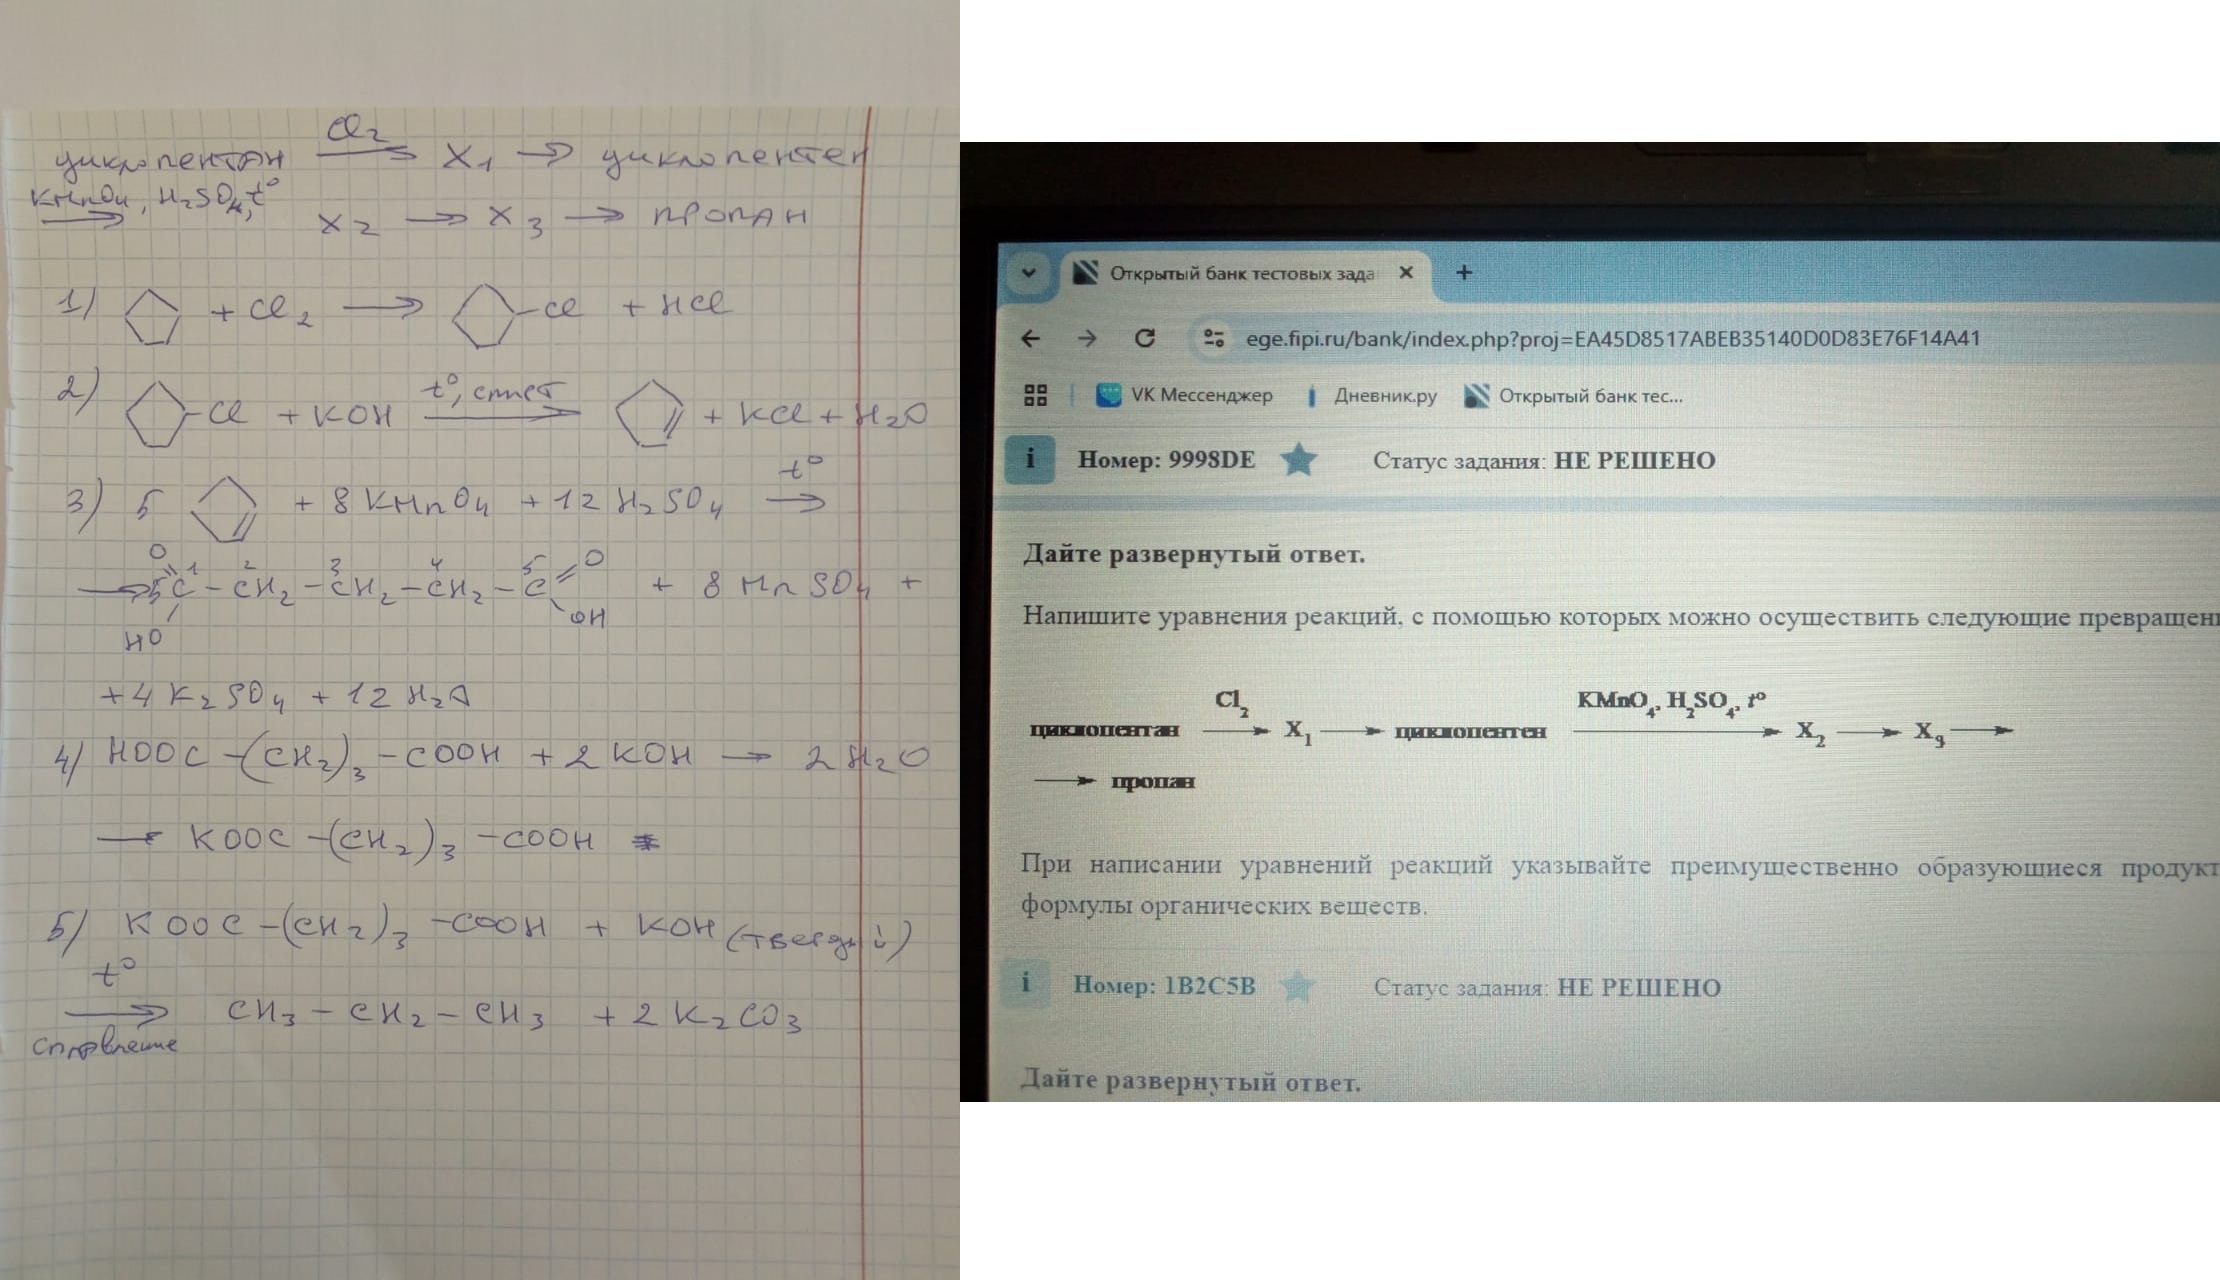 циклопентан Cl2 → X1 → циклопентен
KMnO4, H2SO4, t° → X2 → X3 → пропан
1) + Cl2 → -Cl + HCl
2) -Cl + KOH t°, спирт → + KCl + H2O
3) 5 + 8 KMnO4 + 12 H2SO4 t° →
→ 5 O HO C1 - 2CH2 - 3CH2 - 4CH2 - 5C O OH + 8 MnSO4 +
+ 4 K2SO4 + 12 H2O
4) HOOC -(CH2)3 -COOH + 2 KOH → 2 H2O
→ KOOC -(CH2)3 -COOH
5) KOOC -(CH2)3 -COOH + KOH (твердый)
t° → сплавление CH3 - CH2 - CH3 + 2 K2CO3
Открытый банк тестовых зада
ege.fipi.ru/bank/index.php?proj=EA45D8517ABEB35140D0D83E76F14A41
VK Мессенджер Дневник.ру Открытый банк тес...
i Номер: 9998DE Статус задания: НЕ РЕШЕНО
Дайте развернутый ответ.
Напишите уравнения реакций, с помощью которых можно осуществить следующие превращени
циклопентан Cl2 → X1 → циклопентен KMnO4, H2SO4, t° → X2 → X3 →
→ пропан
При написании уравнений реакций указывайте преимущественно образующиеся продукт
формулы органических веществ.
i Номер: 1B2C5B Статус задания: НЕ РЕШЕНО
Дайте развернутый ответ.